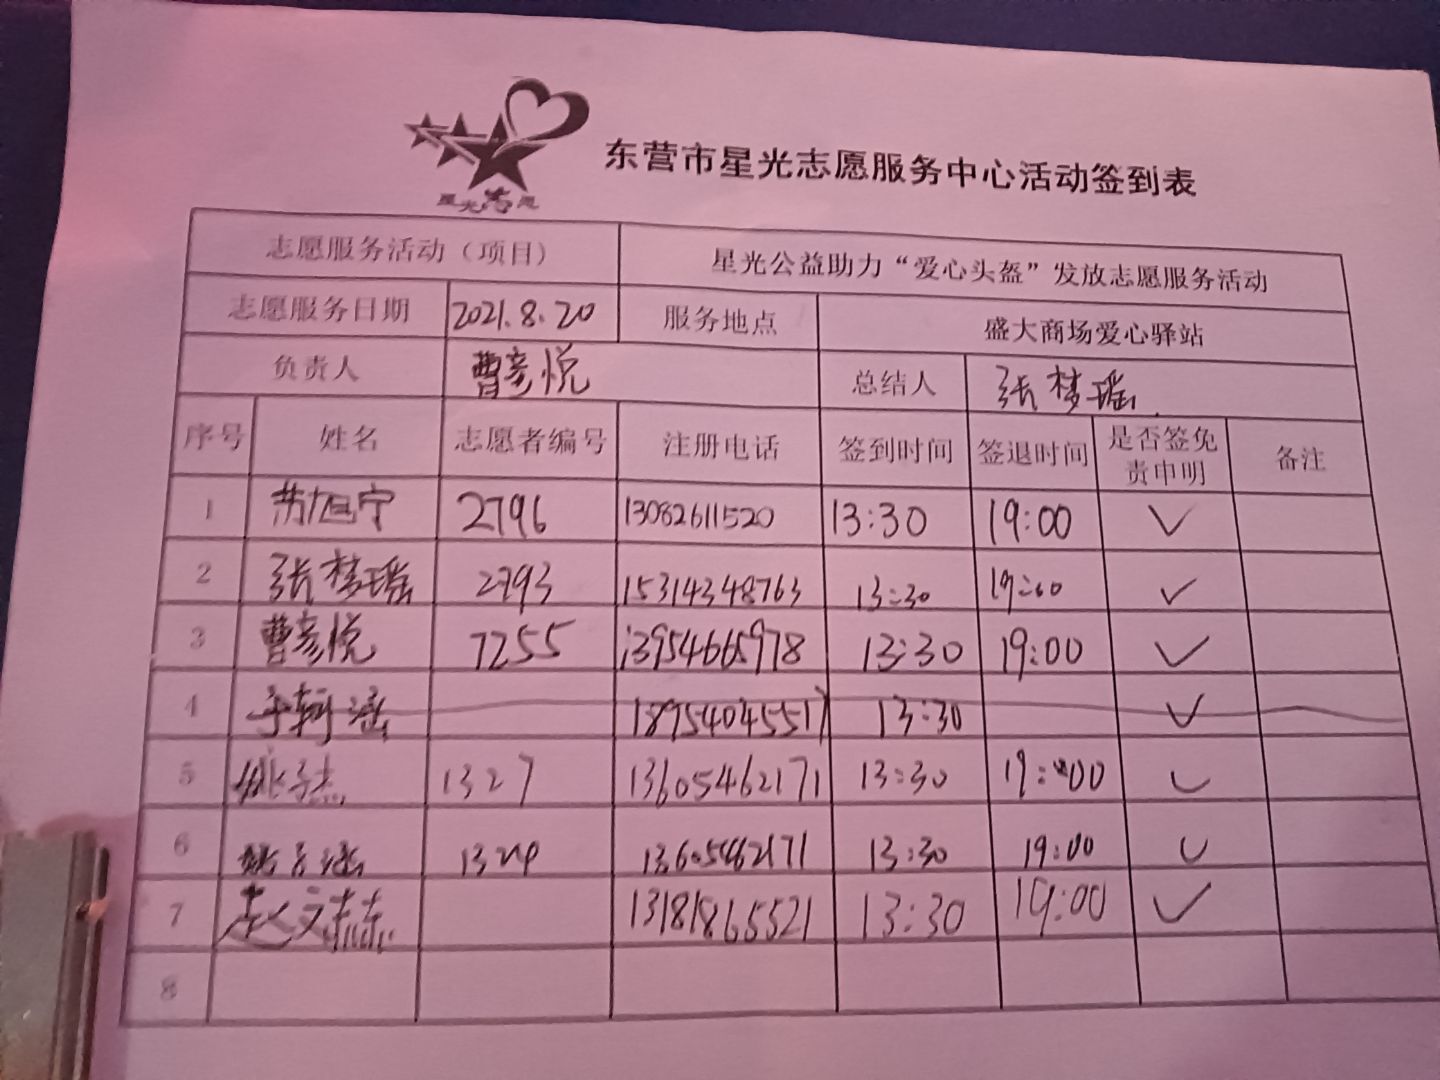 星光志愿
东营市星光志愿服务中心活动签到表
志愿服务活动（项目） 星光公益助力“爱心头盔”发放志愿服务活动
志愿服务日期 2021.8.20 服务地点 盛大商场爱心驿站
负责人 曹彦悦 总结人 张梦瑶
序号 姓名 志愿者编号 注册电话 签到时间 签退时间 是否签免责申明 备注
1 旭宁 2796 13082611520 13:30 19:00 ✓
2 张梦瑶 2793 15314348763 13:30 19:00 ✓
3 曹彦悦 7255 13954665978 13:30 19:00 ✓
4 18954045517 13:30 ✓
5 姚子杰 1327 13605462171 13:30 19:00 ✓
6 姚子涵 13605462171 13:30 19:00 ✓
7 赵文 13181865521 13:30 19:00 ✓
8